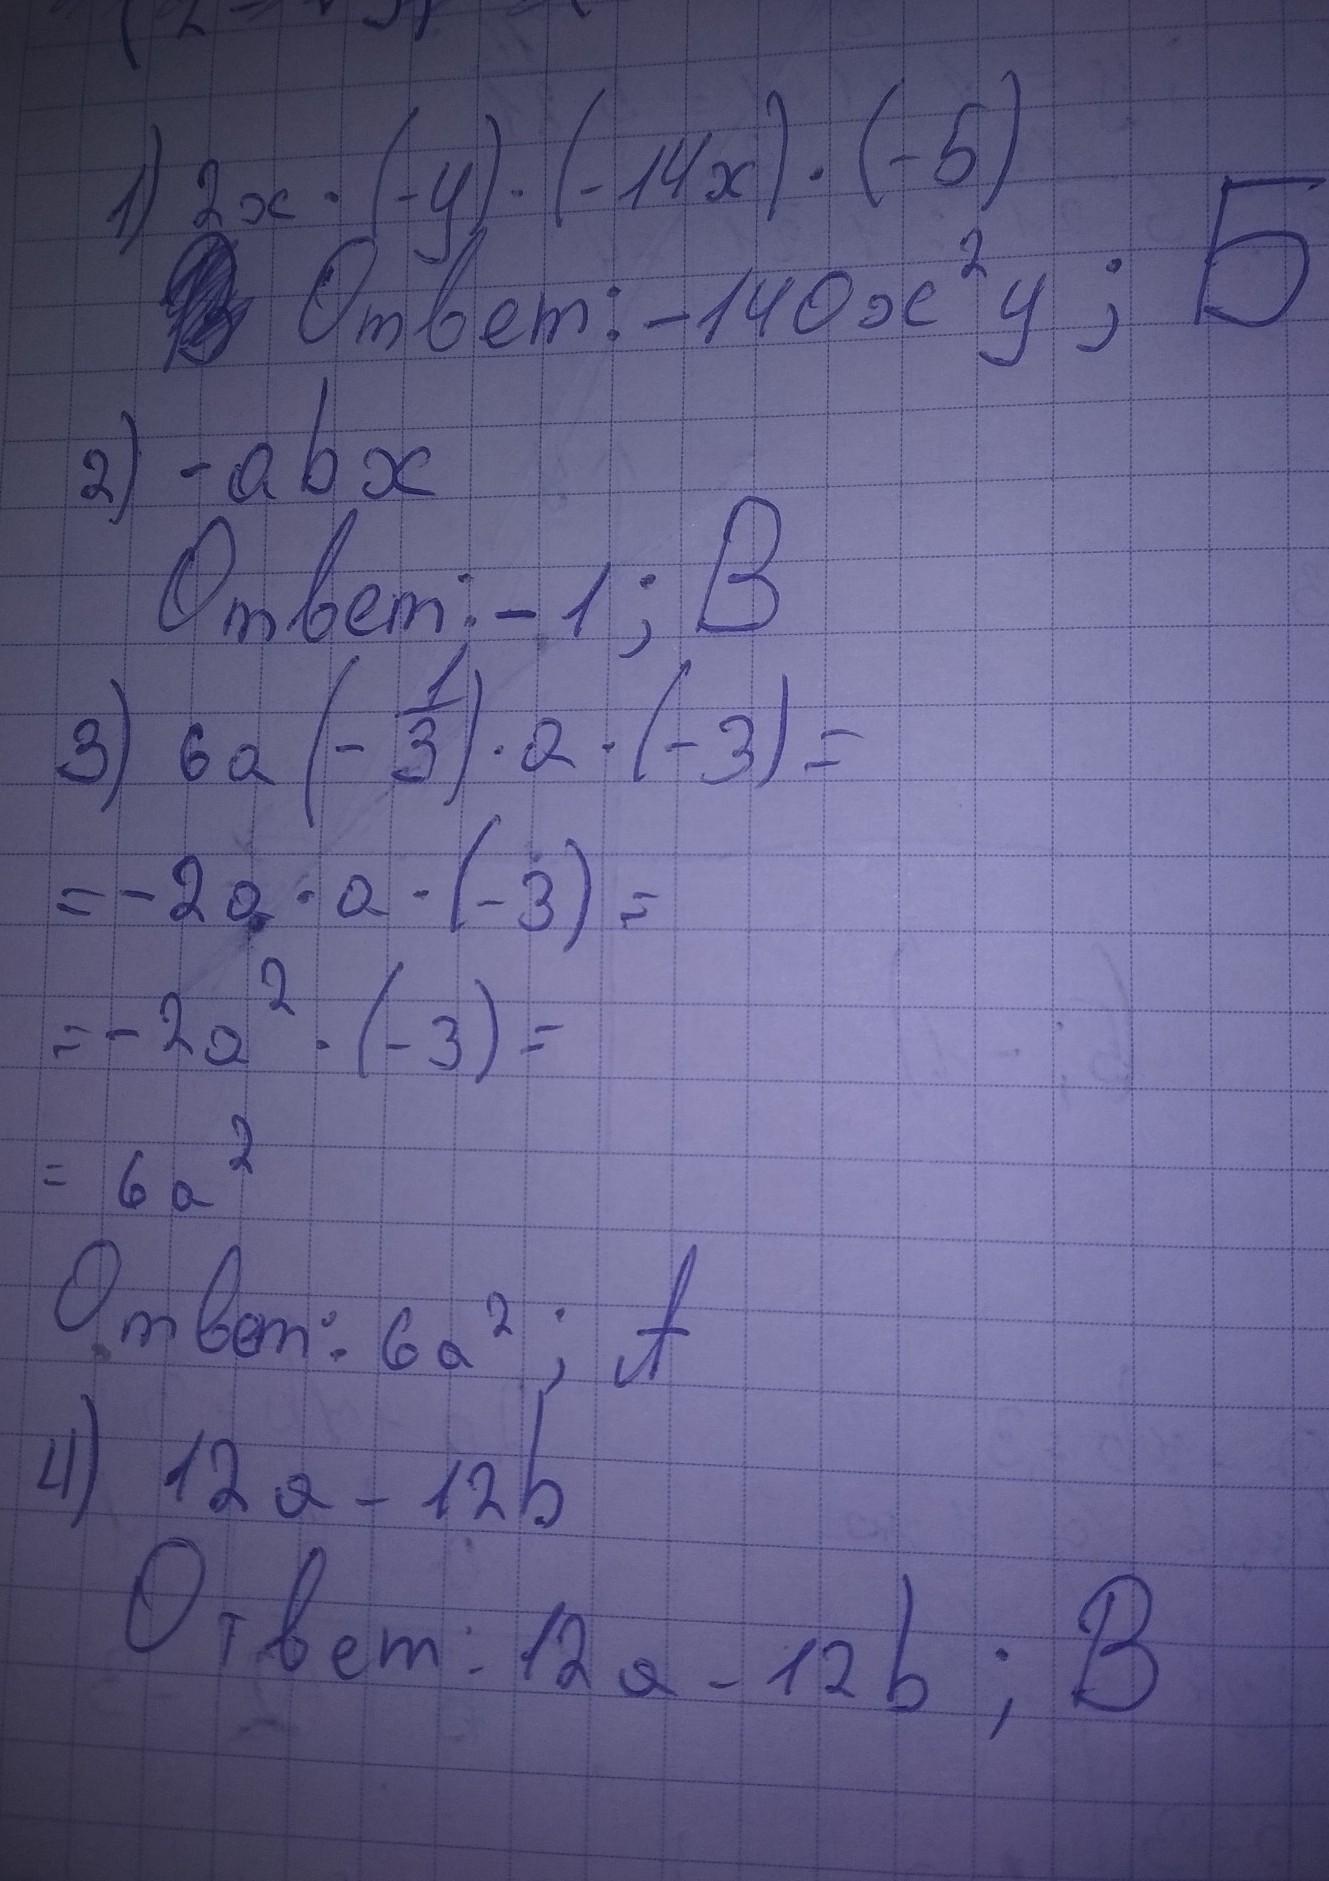 1) 2x · (-y) · (-14x) · (-5)
Ответ: -140x²y ; Б
2) -abx
Ответ: -1 ; В
3) 6a (-1/3) · a · (-3) =
= -2a · a · (-3) =
= -2a² · (-3) =
= 6a²
Ответ: 6a² ; А
4) 12a - 12b
Ответ: 12a - 12b ; В